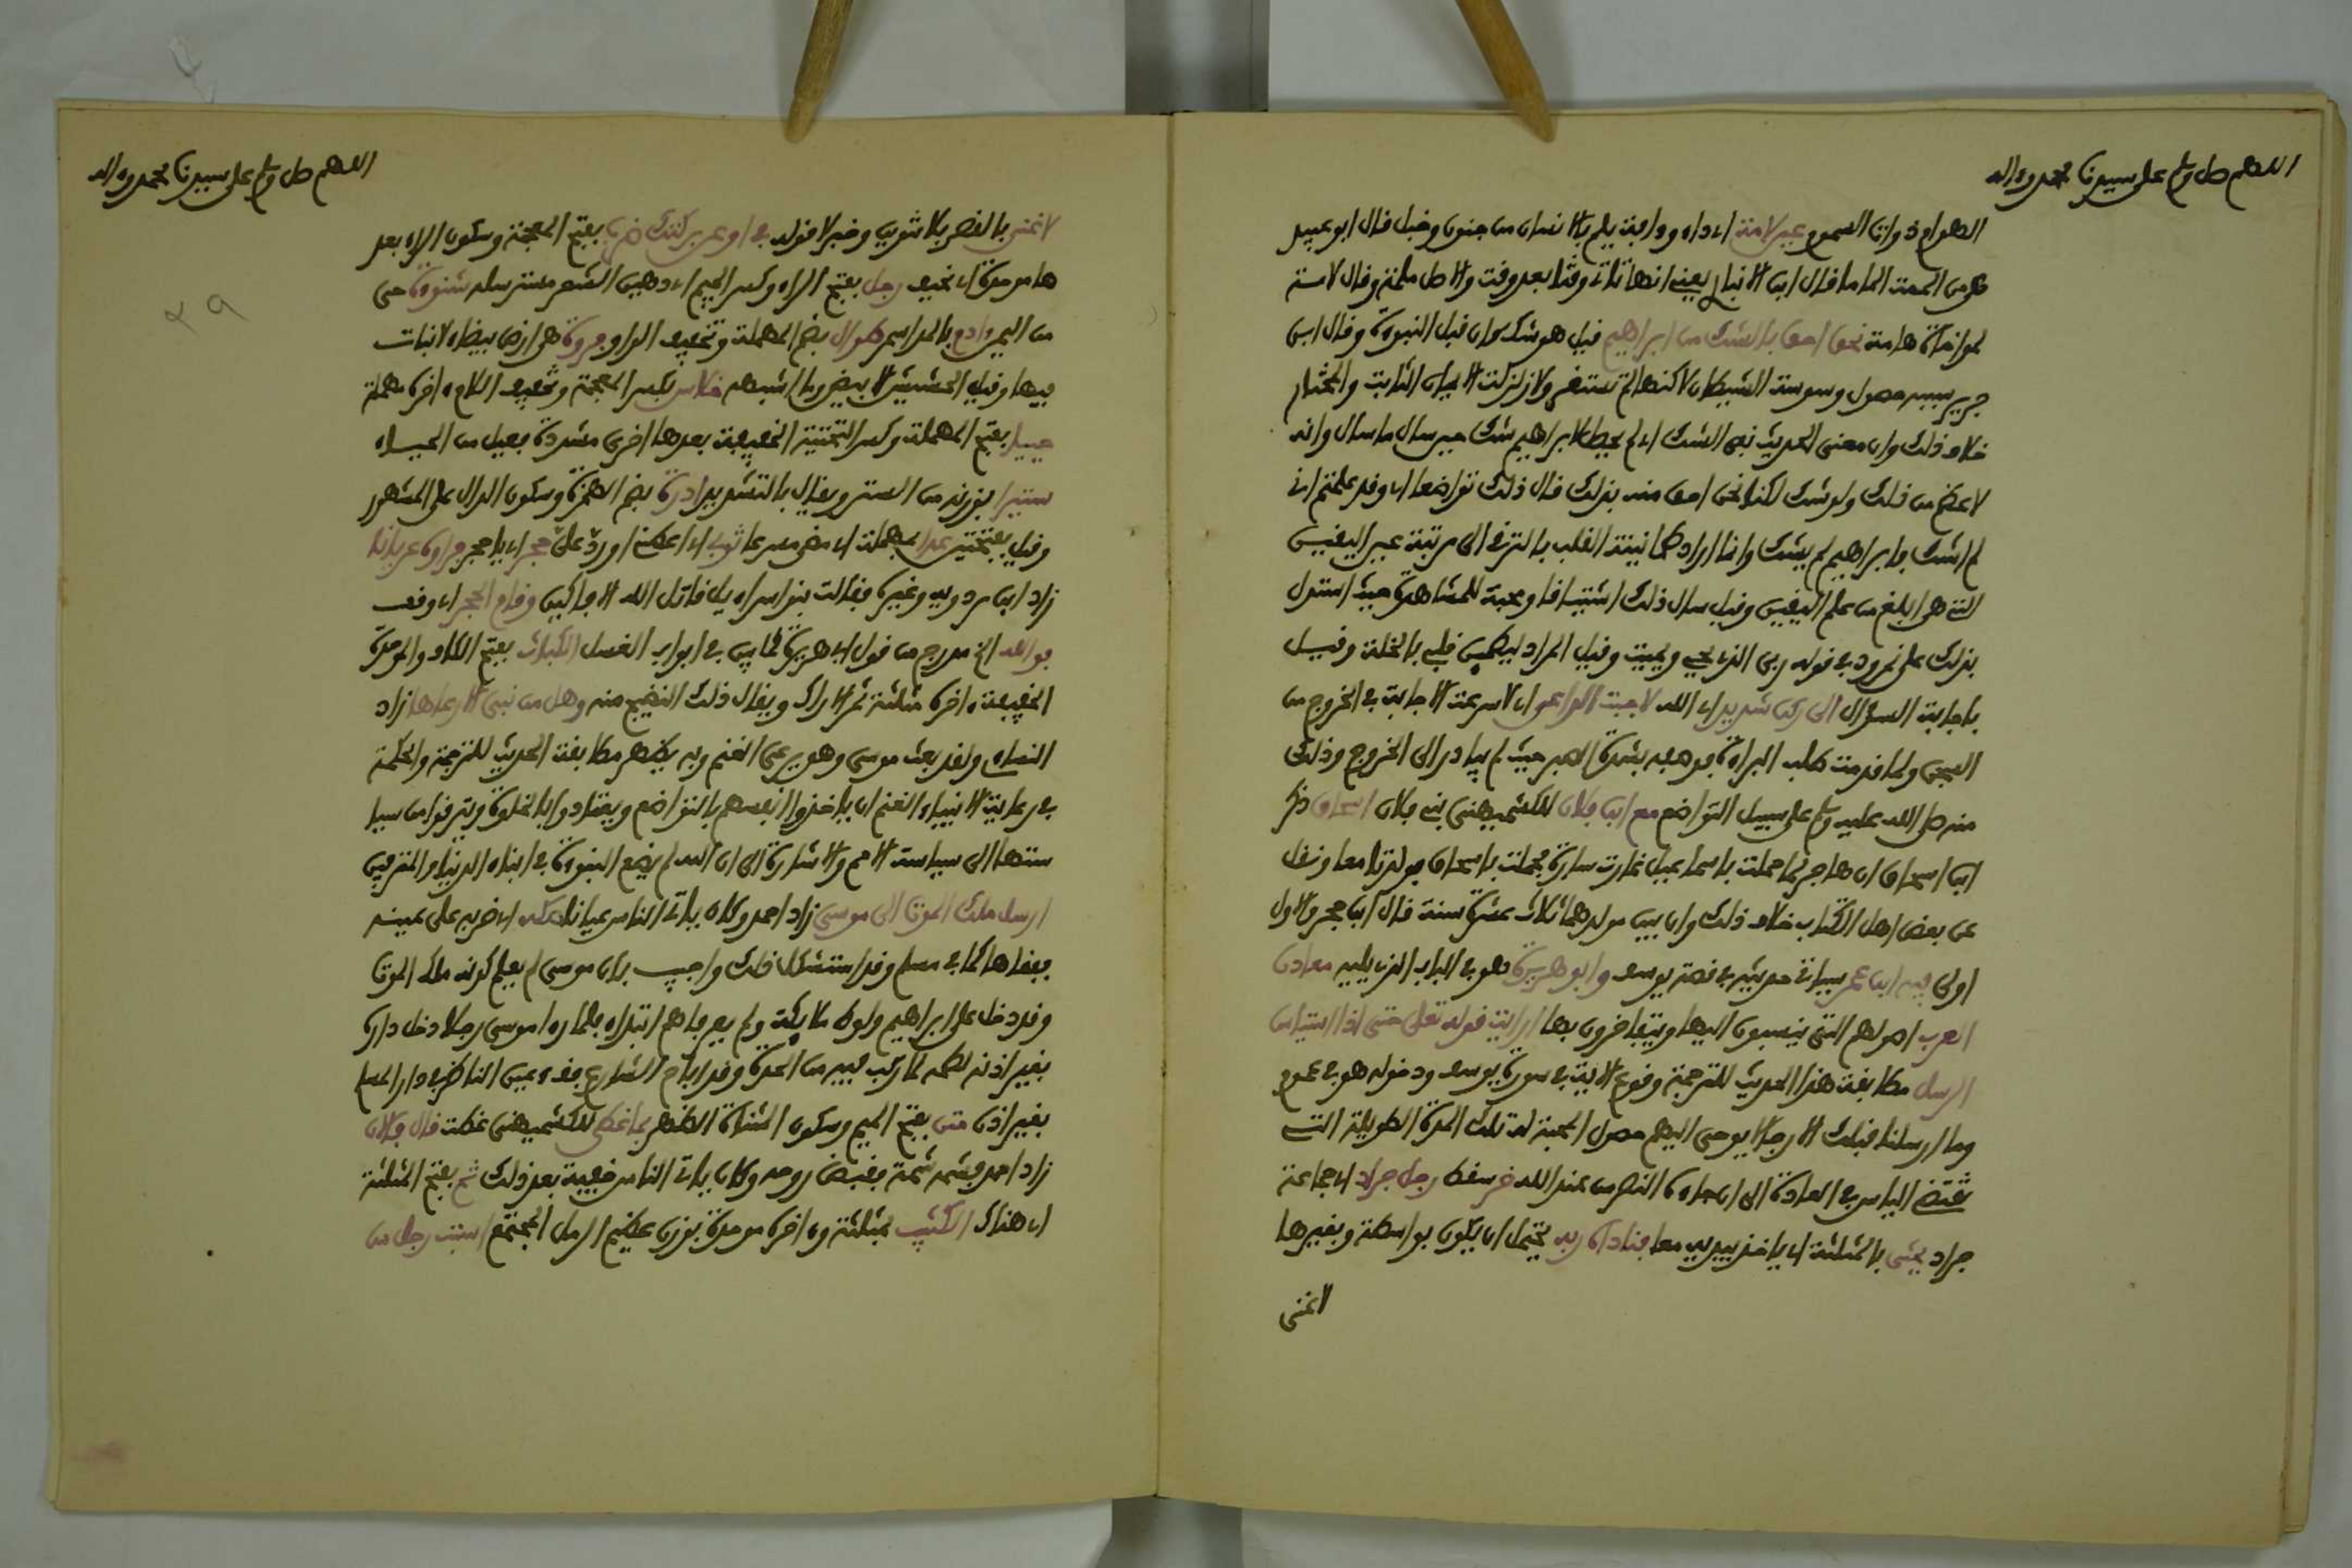 اللهم صل وسلم على سيدنا محمد وءاله
الهوام ذوات السموم عين لامة اي داء وءافة يلم بالانسان من جنون وخبل قال ابو عبيد
هو من الممت الماما قال ابن الانباري يعني انها تاتي وقتا بعد وقت والاصل ملمة وقال لامة
لمواخاة هامة نحن احق بالشك من ابراهيم قيل هو شك كان قبل النبوة وقال ابن
جرير سببه حصول وسوسة الشيطان لاكنها لم تستقر ولا زلزلت الايمان الثابت والمختار
خلاف ذلك وان معنى الحديث نفي الشك اي لم يحصل لابراهيم شك حين سال ما سال وانه
لاعظم من ذلك ولو شك لكنا نحن احق منه بذلك قال ذلك تواضعا اي وقد علمتم اني
لم اشك فابراهيم لم يشك وانما اراد طمانينة القلب بالترقي الى مرتبة عين اليقين
التي هي ابلغ من علم اليقين وقيل سال ذلك اشتياقا ومحبة للمشاهدة حيث استدل
بذلك على نمرود في قوله ربي الذي يحيي ويميت وقيل المراد ليطمين قلبي بالخلة وقيل
باجابة السؤال الى ركن شديد اي الله لاجبت الداعي اي لاسرعت الاجابة في الخروج من
السجن ولما قدمت طلب البراءة فوصفه بشدة الصبر حيث لم يبادر الى الخروج وذلك
منه صلى الله عليه وسلم على سبيل التواضع مع ابن فلان للكشميهني بني فلان اسحاق ذكر
ابن اسحاق ان هاجر لما حملت باسماعيل غارت سارة فحملت باسحاق فولدتا معا ونقل
عن بعض اهل الكتاب خلاف ذلك وان بين مولدهما ثلاث عشرة سنة قال ابن حجر والاول
اولى فيه ابن عمر سياتي حديثه في قصة يوسف وابو هريرة هو في الباب الذي يليه معادن
العرب اصولهم التي ينسبون اليها ويتفاخرون بها ارايت قوله تعلى حتى اذا استياس
الرسل مطابقة هذا الحديث للترجمة وقوع الاية في سورة يوسف ودخوله هو في عموم
وما ارسلنا قبلك الا رجالا يوحى اليهم حصول المحنة له تلك المدة الطويلة التي
تقتضي الياس في العادة الى ان جاءه النصر من عند الله خر سقط رجل جراد اي جماعة
جراد يحثي بالمثلثة اي ياخذ بيديه معا فناداه ربه يحتمل ان يكون بواسطة وبغيرها
لا غنى
اللهم صل وسلم على سيدنا محمد وءاله
لا غنى بالقصر بلا تنوين وخبر لا قوله بي او عن بركتك ضرب بفتح المعجمة وسكون الراء بعد
ها موحدة اي نحيف رجل بفتح الراء وكسر الجيم اي دهين الشعر مسترسله شنوءة حي
من اليمن ءادم بالمد اسمر طوال بضم المهملة وتخفيف الواو فروة هي ارض بيضاء لا نبات
فيها وقيل الحشيش الابيض وما اشبهه خلاس بكسر المعجمة وتخفيف اللام ءاخره مهملة
حييا بفتح المهملة وكسر التحتية الخفيفة بعدها اخرى مشددة فعيل من الحياء
ستيرا بوزنه من الستر ويقال بالتشديد ادرة بضم الهمزة وسكون الدال على المشهور
وقيل بفتحتين عدا بمهملة اي مضى مسرعا ثوبي اي اعطني او رد علي حجر اي يا حجر فراوه عريانا
زاد ابن مردويه وغيره فقالت بنو اسراءيل قاتل الله الافاكين وقام الحجر اي وقف
فوالله الخ مدرج من قول ابي هريرة كما بين في ابواب الغسل الكباث بفتح الكاف والموحدة
الخفيفة ءاخره مثلثة ثمر الاراك ويقال ذلك النضيج منه وهل من نبي الا رعاها زاد
النساءي ولقد بعث موسى وهو يرعى الغنم وبه يظهر مطابقة الحديث للترجمة والحكمة
في رعاية الانبياء الغنم ان ياخذوا انفسهم بالتواضع ويعتادوا بالخلوة ويترقوا من سيا
ستها الى سياسة الامم والاشارة الى ان الله لم يضع النبوة في ابناء الدنيا والمترفين
ارسل ملك الموت الى موسى زاد احمد وكان ياتي الناس عيانا صكه اي ضربه على عينه
ففقاها كما في مسلم وقد استشكل ذلك واجيب بان موسى لم يعلم كونه ملك الموت
وقد دخل على ابراهيم ولوط ملايكة ولم يعرفاهم ابتداء فلما راه موسى رجلا دخل داره
بغير اذنه لطمه لما ركب فيه من الحدة وقد اباح الشارع فقء عين الناظر في دار المسلم
بغير اذن متن بفتح الميم وسكون المثناة الظهر بما غطى للكشميهني غطت قال فالان
زاد احمد فشمه شمة فقبض روحه وكان ياتي الناس خفية بعد ذلك ثم بفتح المثلثة
اي هناك الكثيب بمثلثة وءاخره موحدة بوزن عظيم الرمل المجتمع استب رجل من